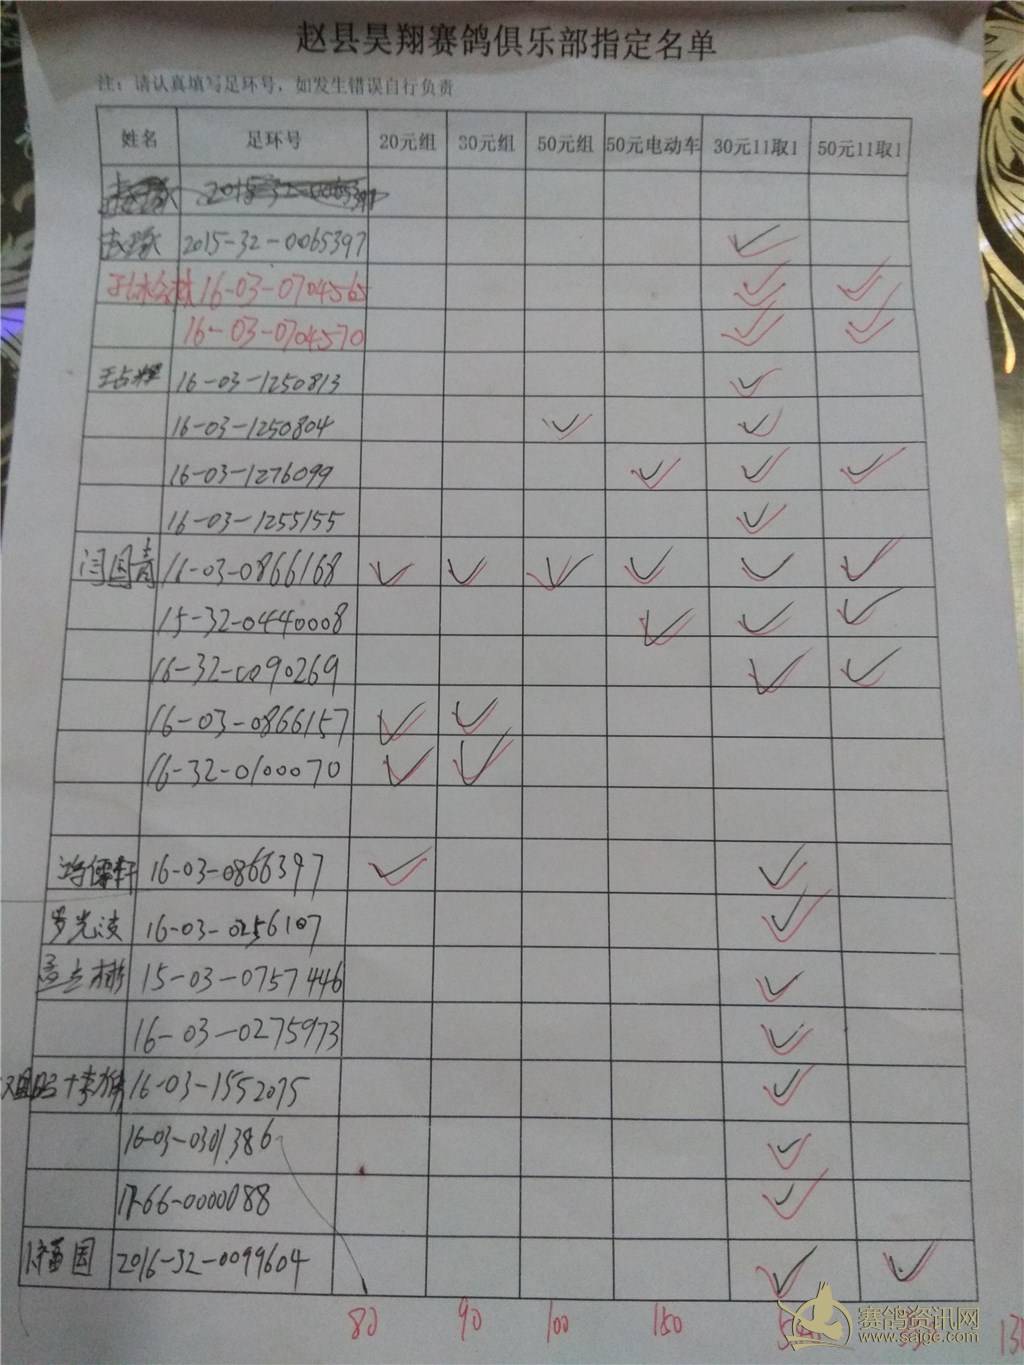 赵县昊翔赛鸽俱乐部指定名单
注：请认真填写足环号，如发生错误自行负责
姓名 足环号 20元组 30元组 50元组 50元电动车 30元11取1 50元11取1
2015-32-0065397
2015-32-0065397 ✓
16-03-0704565 ✓ ✓
16-03-0704570 ✓ ✓
王占辉 16-03-1250813 ✓
16-03-1250804 ✓ ✓
16-03-1276099 ✓ ✓ ✓
16-03-1255155 ✓
闫国青 16-03-0866168 ✓ ✓ ✓ ✓ ✓ ✓
15-32-0440008 ✓ ✓ ✓
16-32-0090269 ✓ ✓
16-03-0866157 ✓ ✓
16-32-0100070 ✓ ✓
鸿儒轩 16-03-0866397 ✓ ✓
罗光凌 16-03-0256107 ✓
孟立彬 15-03-0757446 ✓
16-03-0275973 ✓
16-03-1552075 ✓
16-03-0301386 ✓
17-66-0000088 ✓
2016-32-0099604 ✓ ✓
80 90 100 150
赛鸽资讯网
www.saige.com